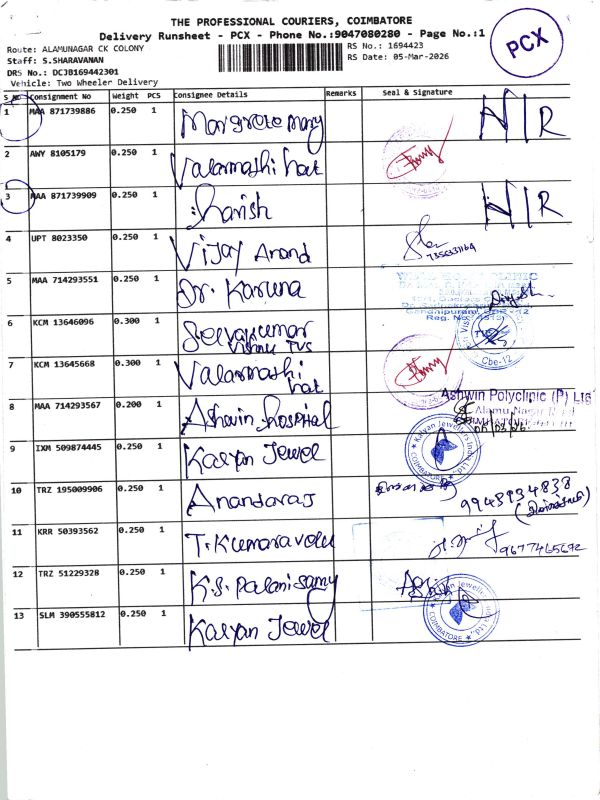 THE PROFESSIONAL COURIERS, COIMBATORE
Delivery Runsheet - PCX - Phone No.:9047080280 - Page No.:1
Route: ALAMUNAGAR CK COLONY
RS No.: 1694423
Staff: S.SHARAVANAN
RS Date: 05-Mar-2026
DRS No.: DCJB169442301
Vehicle: Two Wheeler Delivery
PCX
S No Consignment No Weight PCS Consignee Details Remarks Seal & Signature
1 MAA 871739886 0.250 1 Margrete Mary N/R
2 AWY 8105179 0.250 1 Valarmathi hat
3 MAA 871739909 0.250 1 Harish N/R
4 UPT 8023350 0.250 1 Vijay Anand
5 MAA 714293551 0.250 1 Dr. Karuna
6 KCM 13646096 0.300 1 Selvakumar
Vishnu TVS
Cbe-12
7 KCM 13645668 0.300 1 Valarmathi
hat
8 MAA 714293567 0.200 1 Ashwin hospital Ashwin Polyclinic (P) Ltd
Alamu Nagar
9 IXM 509874445 0.250 1 Kalyan Jewel
COIMBATORE
10 TRZ 195009906 0.250 1 Anandaraj 9948934838
11 KRR 50393562 0.250 1 T. Kumaravelu 9677465692
12 TRZ 51229328 0.250 1 K.S. Palanisamy
13 SLM 390555812 0.250 1 Kalyan Jewel
COIMBATORE